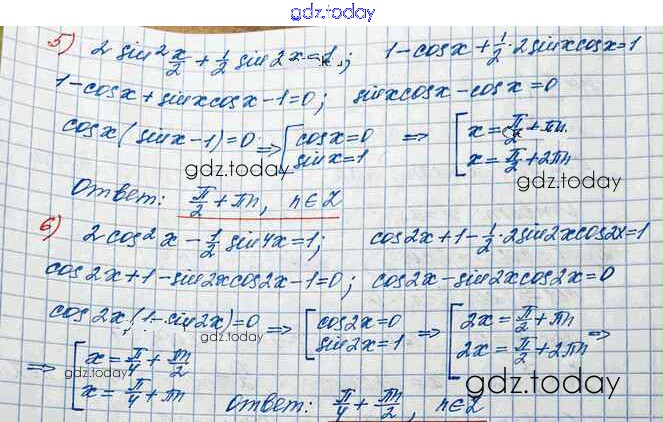 gdz.today
5) 2 sin² x/2 + 1/2 sin 2x = 1; 1 - cosx + 1/2 · 2sinxcosx = 1
1 - cosx + sinxcosx - 1 = 0; sinxcosx - cosx = 0
cosx (sinx - 1) = 0 ⇒ [ cosx = 0 ⇒ [ x = π/2 + πn
sinx = 1 x = π/2 + 2πn
gdz.today
gdz.today
Ответ: π/2 + πn, n∈Z
6) 2cos²x - 1/2 sin4x = 1; cos2x + 1 - 1/2 · 2sin2xcos2x = 1
cos2x + 1 - sin2xcos2x - 1 = 0; cos2x - sin2xcos2x = 0
cos2x (1 - sin2x) = 0 ⇒ [ cos2x = 0 ⇒ [ 2x = π/2 + πn ⇒
sin2x = 1 2x = π/2 + 2πn
⇒ [ x = π/4 + πn/2
gdz.today
gdz.today
x = π/4 + πn Ответ: π/4 + πn/2, n∈Z